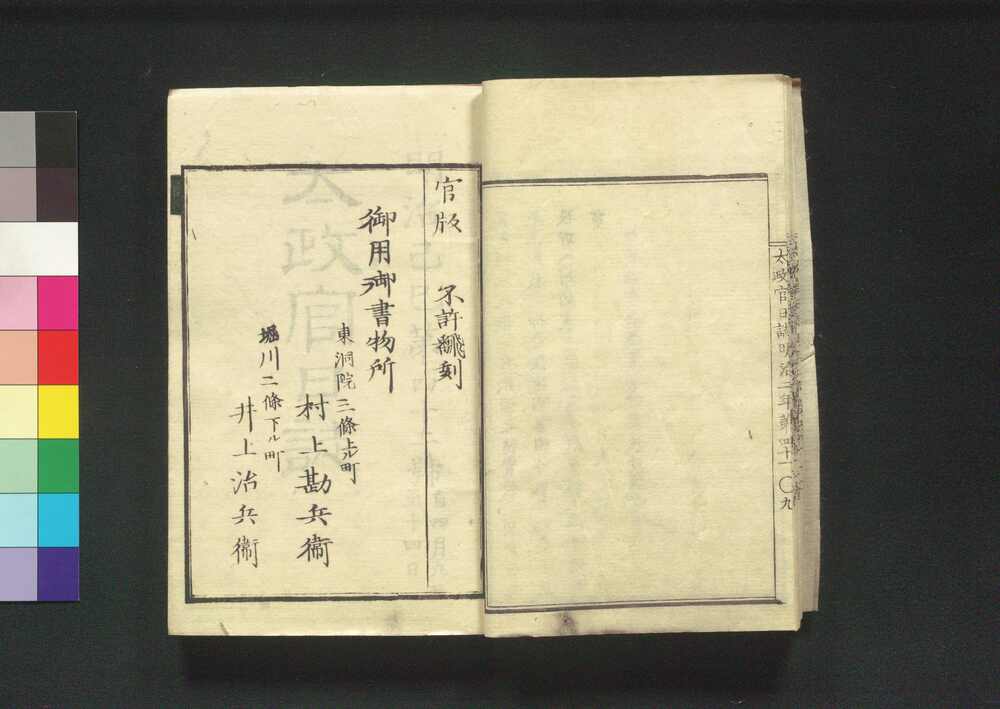 太政官日誌明治二年第四十一〇九
官版　不許翻刻
御用御書物所
東洞院三條上ル町
村上勘兵衞
堀川二條下ル町
井上治兵衞